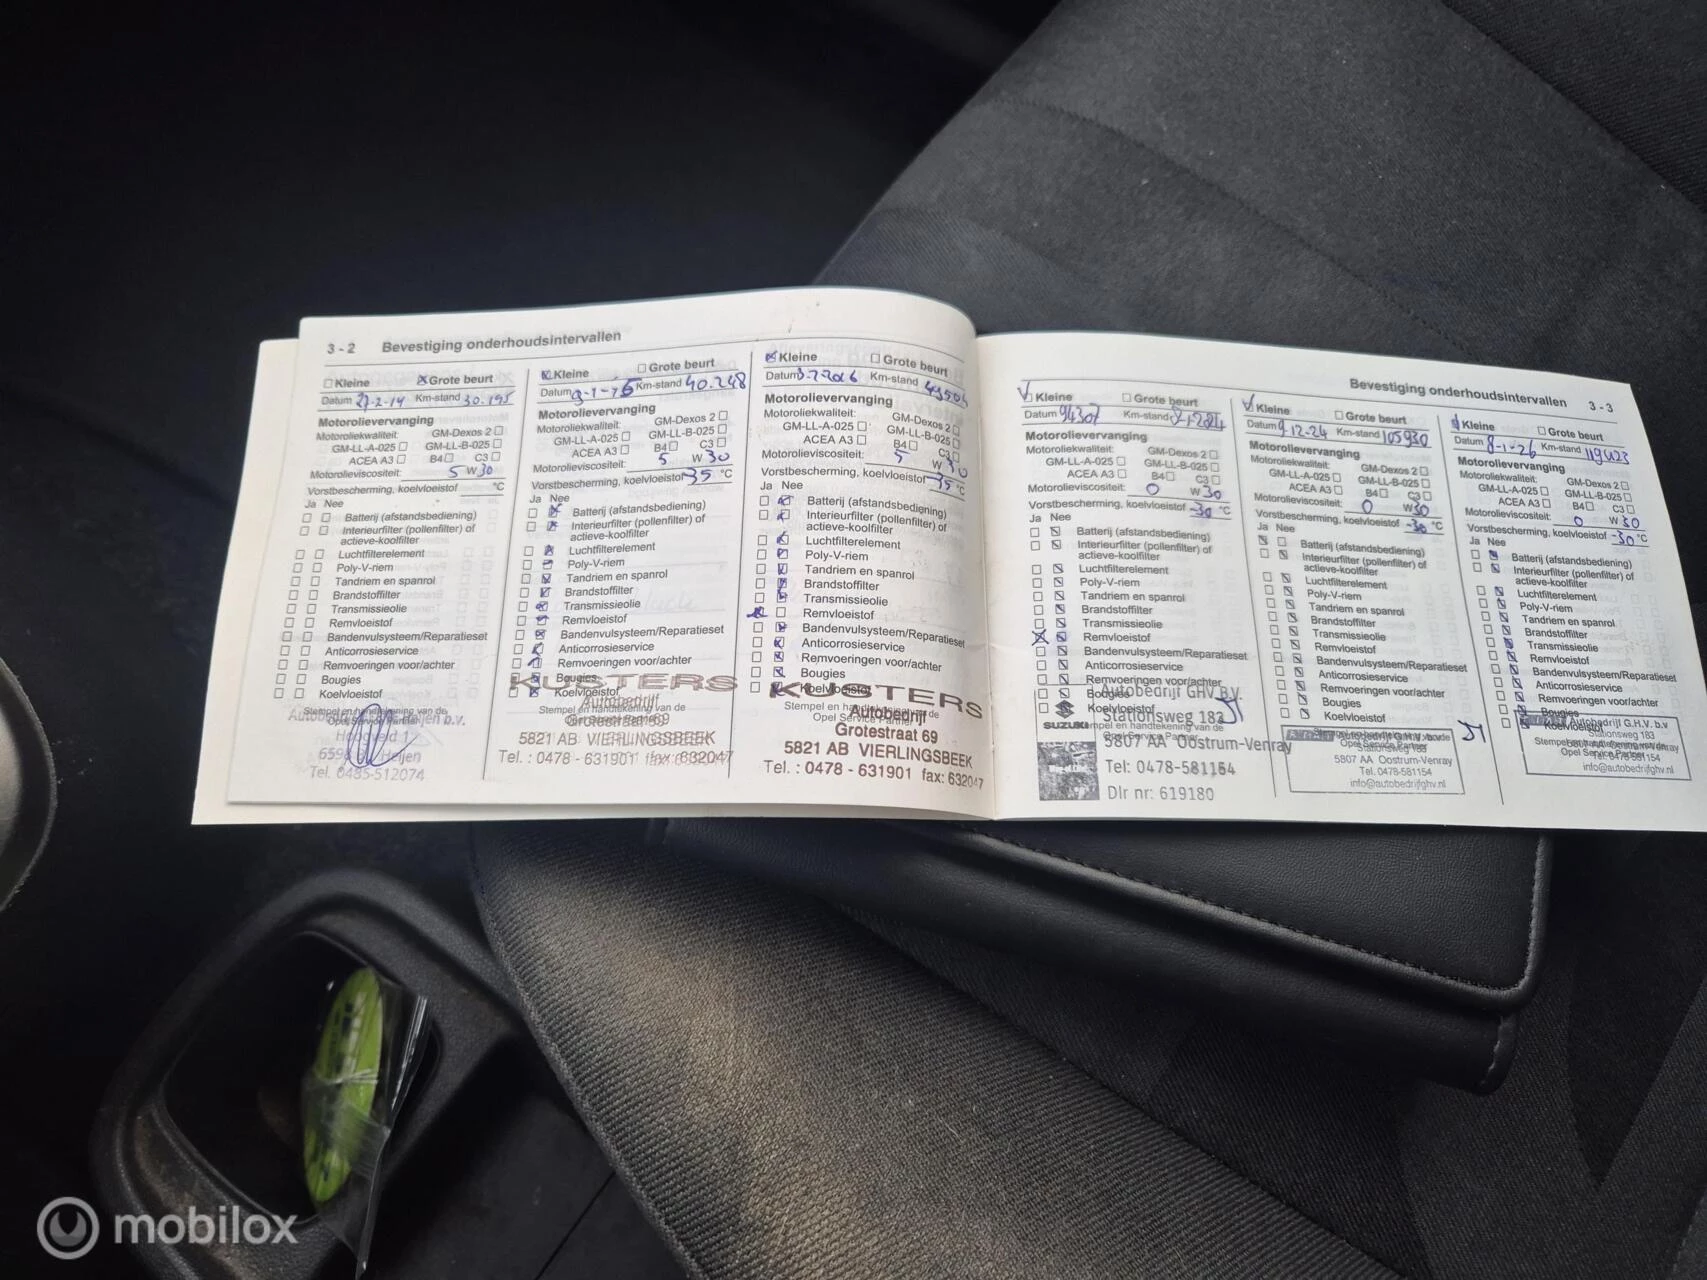 3 - 2 Bevestiging onderhoudsintervallen
Kleine Grote beurt
Datum 27-2-14 Km-stand 30.195
Motorolievervanging
Motoroliekwaliteit: GM-Dexos 2
GM-LL-A-025 GM-LL-B-025
ACEA A3 B4 C3
Motorolieviscositeit: 5 W 30
Vorstbescherming, koelvloeistof °C
Ja Nee
Batterij (afstandsbediening)
Interieurfilter (pollenfilter) of
actieve-koolfilter
Luchtfilterelement
Poly-V-riem
Tandriem en spanrol
Brandstoffilter
Transmissieolie
Remvloeistof
Bandenvulsysteem/Reparatieset
Anticorrosieservice
Remvoeringen voor/achter
Bougies
Koelvloeistof
Stempel en handtekening van de
Opel Service Partner
Heijen b.v.
Hoogveld 1
Heijen
Tel. 0485-512074
Kleine Grote beurt
Datum Km-stand 40.248
Motorolievervanging
Motoroliekwaliteit: GM-Dexos 2
GM-LL-A-025 GM-LL-B-025
ACEA A3 B4 C3
Motorolieviscositeit: 5 W 30
Vorstbescherming, koelvloeistof -35 °C
Ja Nee
Batterij (afstandsbediening)
Interieurfilter (pollenfilter) of
actieve-koolfilter
Luchtfilterelement
Poly-V-riem
Tandriem en spanrol
Brandstoffilter
Transmissieolie
Remvloeistof
Bandenvulsysteem/Reparatieset
Anticorrosieservice
Remvoeringen voor/achter
Bougies
Koelvloeistof
KUSTERS
Autobedrijf
Stempel en handtekening van de
Grotestraat 69
5821 AB VIERLINGSBEEK
Tel. : 0478 - 631901 fax: 632047
Kleine Grote beurt
Datum Km-stand
Motorolievervanging
Motoroliekwaliteit: GM-Dexos 2
GM-LL-A-025 GM-LL-B-025
ACEA A3 B4 C3
Motorolieviscositeit: 5 W 30
Vorstbescherming, koelvloeistof -35 °C
Ja Nee
Batterij (afstandsbediening)
Interieurfilter (pollenfilter) of
actieve-koolfilter
Luchtfilterelement
Poly-V-riem
Tandriem en spanrol
Brandstoffilter
Transmissieolie
Remvloeistof
Bandenvulsysteem/Reparatieset
Anticorrosieservice
Remvoeringen voor/achter
Bougies
Koelvloeistof
KUSTERS
Autobedrijf
Opel Service Partner
Grotestraat 69
5821 AB VIERLINGSBEEK
Tel. : 0478 - 631901 fax: 632047
Bevestiging onderhoudsintervallen 3 - 3
Kleine Grote beurt
Datum 94307 Km-stand
Motorolievervanging
Motoroliekwaliteit: GM-Dexos 2
GM-LL-A-025 GM-LL-B-025
ACEA A3 B4 C3
Motorolieviscositeit: 0 W 30
Vorstbescherming, koelvloeistof -30 °C
Ja Nee
Batterij (afstandsbediening)
Interieurfilter (pollenfilter) of
actieve-koolfilter
Luchtfilterelement
Poly-V-riem
Tandriem en spanrol
Brandstoffilter
Transmissieolie
Remvloeistof
Bandenvulsysteem/Reparatieset
Anticorrosieservice
Remvoeringen voor/achter
Bougies
Koelvloeistof
Autobedrijf GHV B.V.
Stationsweg 183
SUZUKI
5807 AA Oostrum-Venray
Tel: 0478-581154
Dlr nr: 619180
Kleine Grote beurt
Datum 9.12.24 Km-stand 105930
Motorolievervanging
Motoroliekwaliteit: GM-Dexos 2
GM-LL-A-025 GM-LL-B-025
ACEA A3 B4 C3
Motorolieviscositeit: 0 W 30
Vorstbescherming, koelvloeistof -30 °C
Ja Nee
Batterij (afstandsbediening)
Interieurfilter (pollenfilter) of
actieve-koolfilter
Luchtfilterelement
Poly-V-riem
Tandriem en spanrol
Brandstoffilter
Transmissieolie
Remvloeistof
Bandenvulsysteem/Reparatieset
Anticorrosieservice
Remvoeringen voor/achter
Bougies
Koelvloeistof
Autobedrijf G.H.V. b.v
Stationsweg 183
Opel Service Partner
5807 AA Oostrum-Venray
Tel. 0478-581154
info@autobedrijfghv.nl
Kleine Grote beurt
Datum 8-1-26 Km-stand 119423
Motorolievervanging
Motoroliekwaliteit: GM-Dexos 2
GM-LL-A-025 GM-LL-B-025
ACEA A3 B4 C3
Motorolieviscositeit: 0 W 30
Vorstbescherming, koelvloeistof -30 °C
Ja Nee
Batterij (afstandsbediening)
Interieurfilter (pollenfilter) of
actieve-koolfilter
Luchtfilterelement
Poly-V-riem
Tandriem en spanrol
Brandstoffilter
Transmissieolie
Remvloeistof
Bandenvulsysteem/Reparatieset
Anticorrosieservice
Remvoeringen voor/achter
Bougies
Koelvloeistof
Autobedrijf G.H.V. b.v
Stationsweg 183
Opel Service Partner
Tel. 0478-581154
info@autobedrijfghv.nl
mobilox